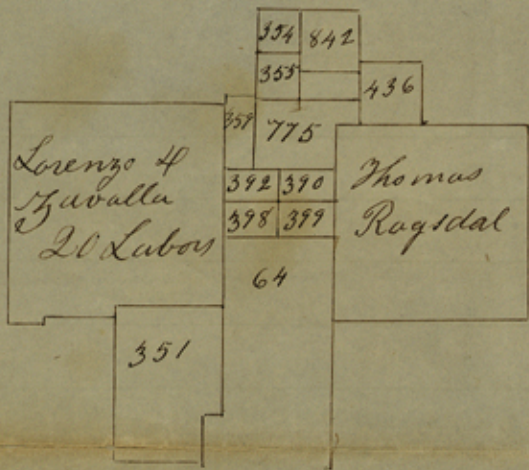 354 842
355
436
359 775
Lorenzo D
Zavalla
20 Labors
392 390
398 399
Thomas
Ragsdal
64
351